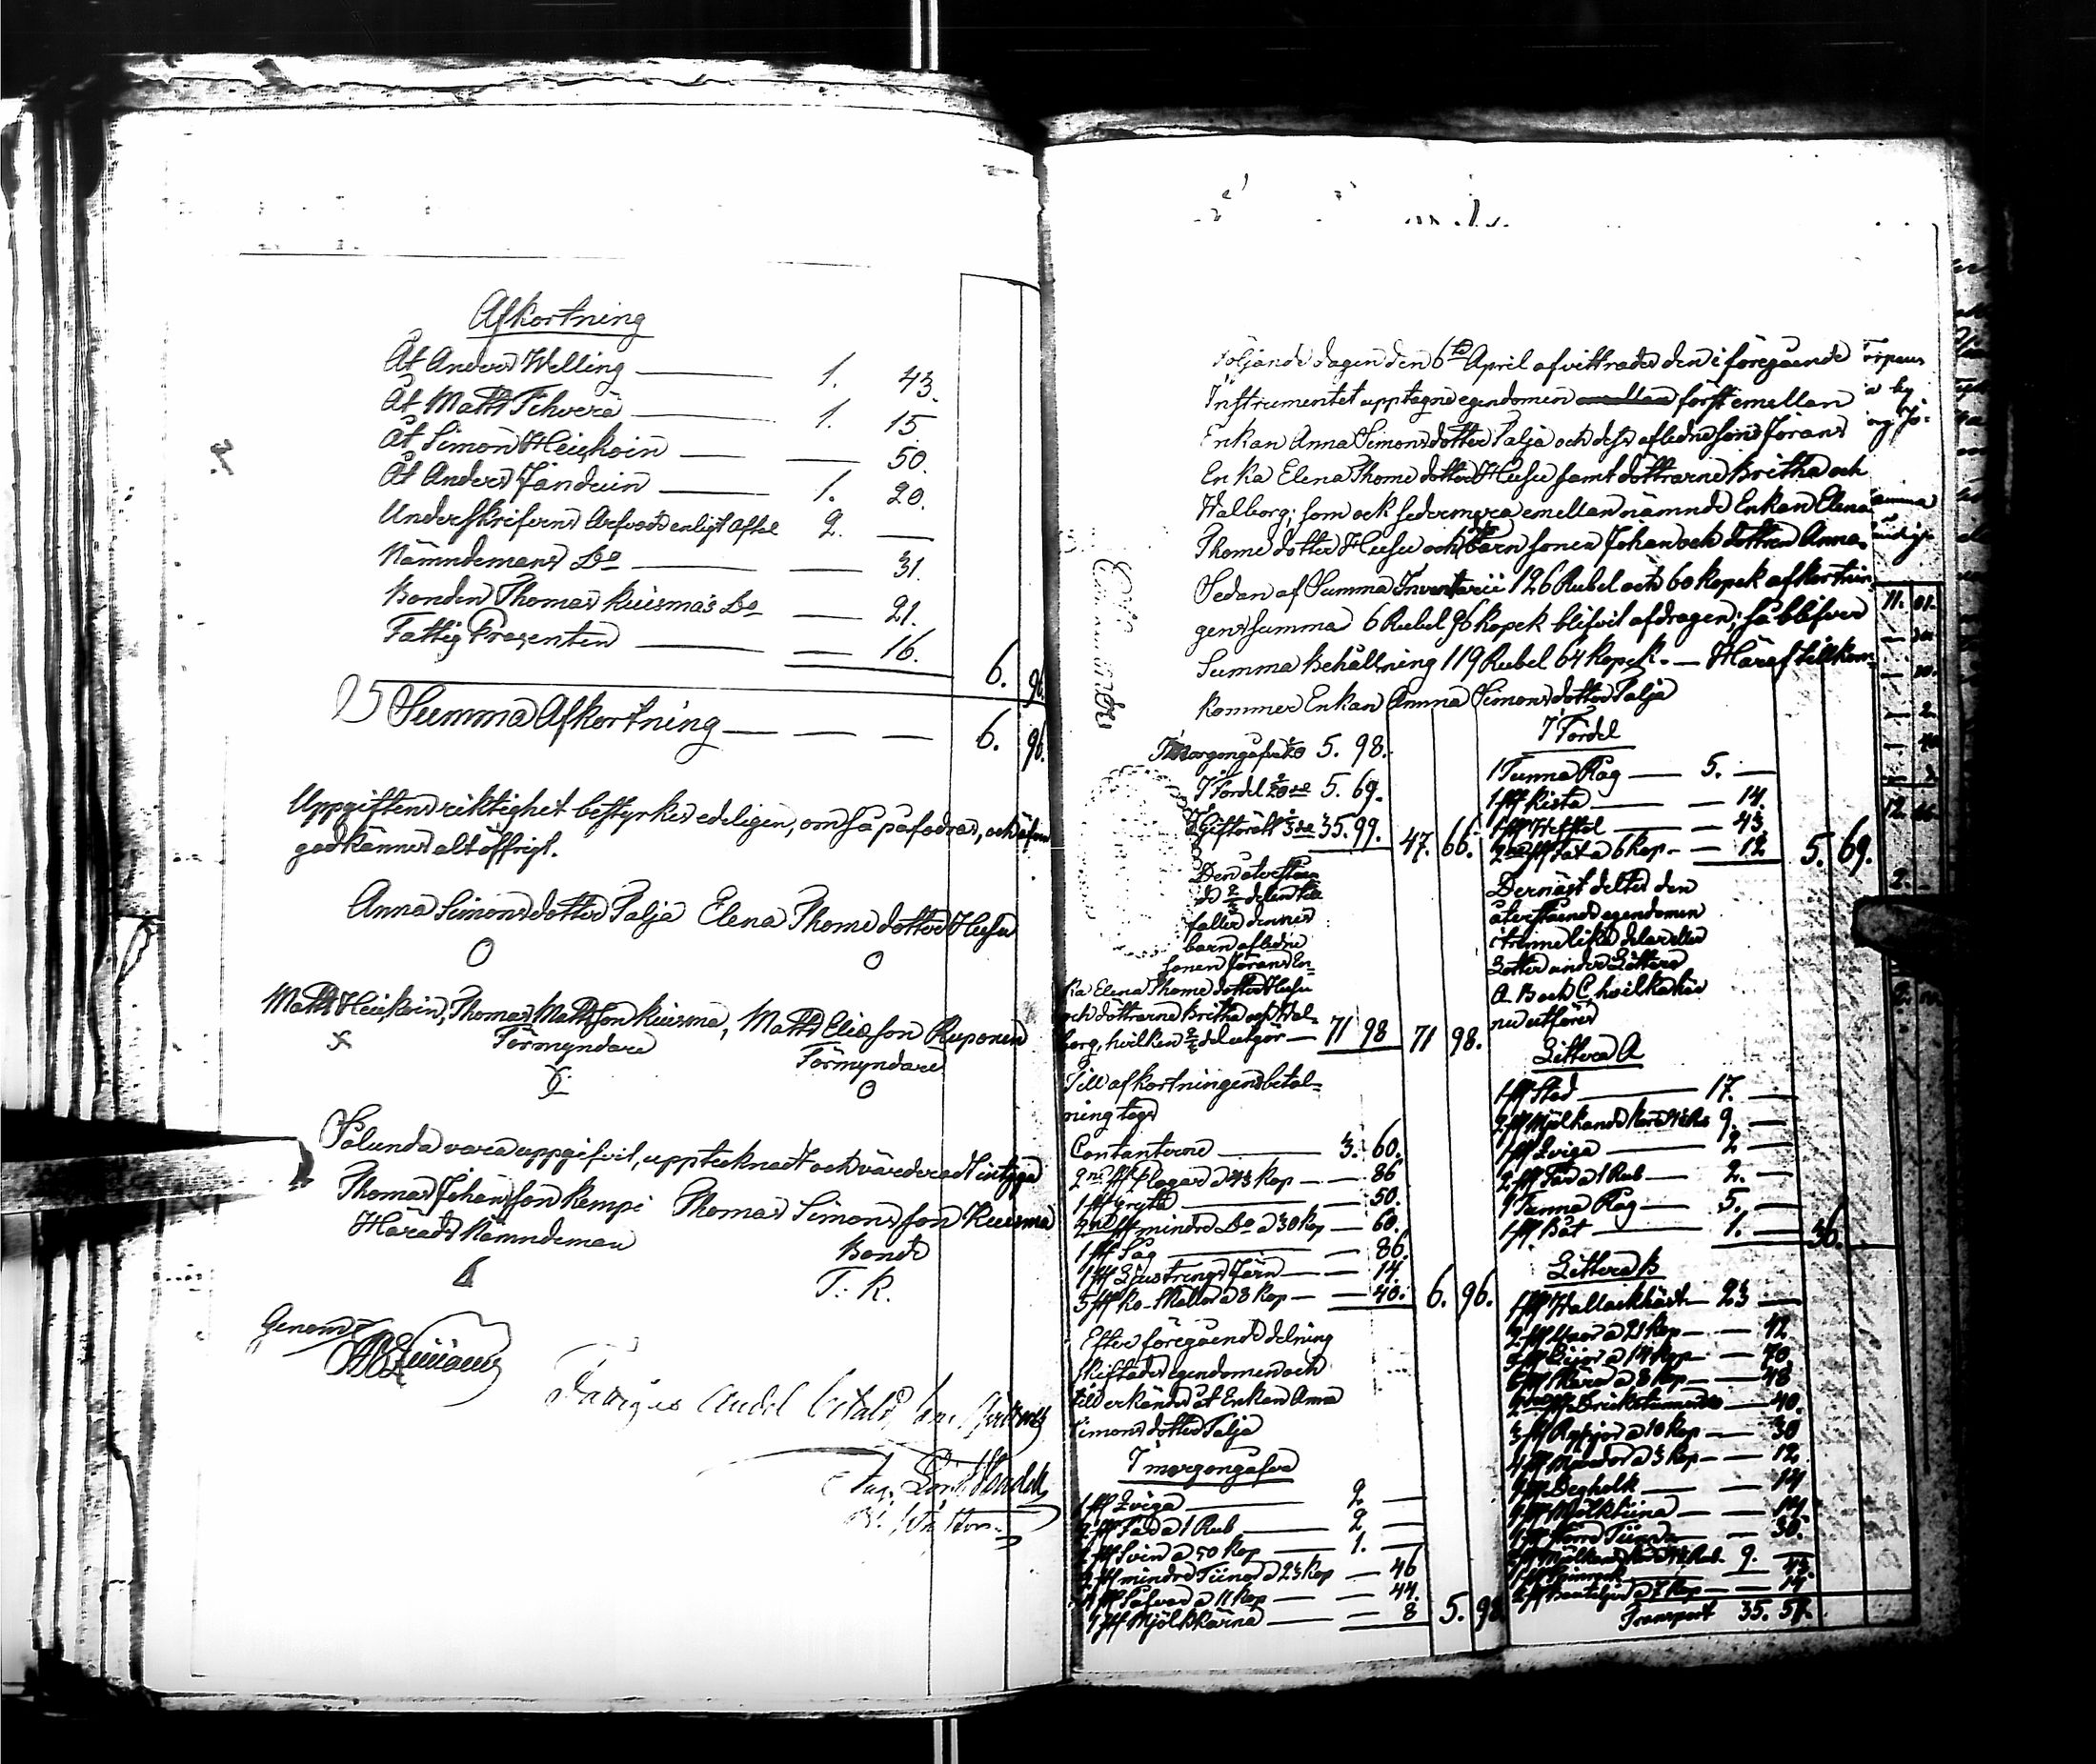 Afkortning
Åt Anders Welling — 1. 43.
Åt Matts Tehverä — 1. 15
Åt Simon Heiskoin — — 50.
Åt Anders Jändein — 1. 20.
Underskrifvens Arfvode enligt Aftal 2. —
Nämndemans Do — — 31.
Bonden Thomas Kuisma's Do — 21.
Fattig Procenten — — 16. 6. 96.
Summa Afkortning — — — 6. 96.
Uppgiftens riktighet bestyrkes edeligen, om så påfodras, och äfven
godkännes alt öffrigt.
Anna Simonsdotter Palja Elena Thomedotter Husu
Matts Heiskoin, Thomas Mattsson Kuisma, Matts Eliasson Ruponen
Förmyndare Förmyndare
Sålunda vara uppgifvit, upptecknadt och värderadt intyga
Thomas Johansson Kempi Thomas Simonsson Kuisma
Härads Nämndeman Bonde
T. K.
Genom
Fattiges Andel betald
Följande dagen den 6te April afvittrades den i föregående
Instrumentet upptagne egendomen mellan först emellan
Enkan Anna Simonsdotter Palja och dess aflednes sons Jörans
Enka Elena Thomedotter Husu samt döttrarne Britha och
Walborg; som ock sedermera emellan nämnde Enkan Elena
Thomedotter Husu och barn sonen Johan och dottren Anna.
Sedan af Summa Inventarii 126 Rubel och 60 kopek afkortnin-
gens summa 6 Rubel 96 kopek blifvit afdragen; så blifver
Summa Behållning 119 Rubel 64 kopek. — Häraf tillkom-
kommer Enkan Anna Simonsdotter Palja
I morgongåfva 5. 98.
I Fördel 5. 69.
Giftorätt 35. 99. 47. 66.
Den återståen
de 2/3 delen till
faller dennes
barn aflednе
sonen Jörans En-
ka Elena Thomedotter Husu
och döttrarne Britha och Wal-
borg, hvilken 2/3 del utgör — 71 98 71 98.
Till afkortningens betal-
ning togs
Contanterne — 3. 60.
2ne st Plogar a 43 kop — — 86
1 st gryta — 50.
2ne st mindre Do a 30 kop — 60.
1 st Såg — — 86.
1 st Ljustrings Järn — — 14.
5 st Ko-skällor a 8 kop — — 40. 6. 96.
Efter föregående delning
skiftades egendomen och
tillerkändes åt Enkan Anna
Simonsdotter Palja
I morgongåfva
1 st Qviga — 2 —
2 st Får a 1 Rub — 2 —
2 st Svin a 50 kop — 1. —
2 st mindre Tiinor a 23 kop — 46
4 st Såfvar a 11 kop — — 44.
1 st Mjölkkärna — — 8 5. 98.
I Fördel
1 Tunna Råg — 5. —
1 st Kista — — 14.
1 st Wefstol — — 43.
2ne st Fat a 6 kop — — 12 5. 69.
Dernäst deltes den
återstående egendomen
i trenne lika delar eller
Lotter under Littera
A. B och C, hvilka här
nu utföres
Littera A
1 st Stod — 17. —
2 st Mjölkande kor a 4½ Rub 9. —
1 st Qviga — 2 —
2 st Får a 1 Rub — 2. —
1 Tunna Råg — 5. —
1 st Båt — 1. — 36.
Littera B
1 st Wallackhäst — 23 —
2 st a 21 kop — — 42
5 st a 14 kop — 70.
6 st a 8 kop — — 48
— 40.
3 st a 10 kop — — 30
4 st a 3 kop — — 12
1 st Degholk — — 14
1 st Mjölktiina — — 14
— 30.
2 st Mjölkande kor a 4½ Rub. 9. —
1 st Spinrock — 43.
2 st a 7 kop — 14
Transport 35. 57.